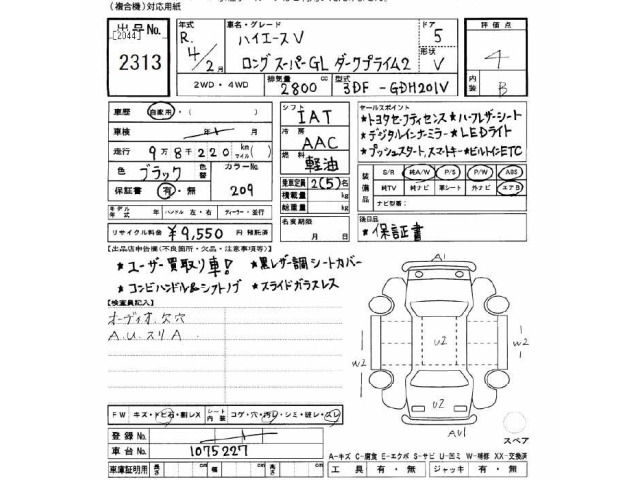 (複合機)対応用紙
出品No.
[2044]
2313
年式
R. 4/2月
車名・グレード
ハイエースV
ロング スーパーGL ダークプライム2
ドア
5
形状
V
評価点
4
内装
B
2WD・4WD
排気量
2800 cc
型式
3DF-GDH201V
車歴 自家用・( )
車検 年 月
走行 9万8千220 km(マイル)
色 ブラック
色替
カラーNo.
209
保証書 有・無
シフト
IAT
冷房
AAC
燃料
軽油
乗車定員 2(5)名
積載量 kg
総重量 kg
セールスポイント
★トヨタセーフティセンス★ハーフレザーシート
★デジタルインナーミラー★LEDライト
★プッシュスタート,スマートキー★ビルトインETC
装備品
S/R 純A/W P/S P/W ABS
純TV 純ナビ 革シート 外ナビ エアB
ナビ型番:
モデル年式 年 ハンドル 左・右 ディーラー・並行
リサイクル料金 ¥9,550 円 預託済
名変期限
月 日
後日品
★保証書
【出品店申告欄(不良箇所・欠品・注意事項等)】
★ユーザー買取り車! ★黒レザー調シートカバー
★コンビハンドル&シフトノブ ★スライドガラスレス
【検査員記入】
オーディオ欠穴
A.U.スリA
A1
W2
U2
W2
U2
AU1
スペア
FW キズ・トビ石・割レX
シート内装
コゲ・穴・汚レ・シミ・破レ・スレ
登録No.
車台No. 1075227
車庫証明用 長 cm 幅 cm 高 cm
A-キズ C-腐食 E-エクボ S-サビ U-凹ミ W-補修 XX-交換済
工具 有・無 ジャッキ 有・無